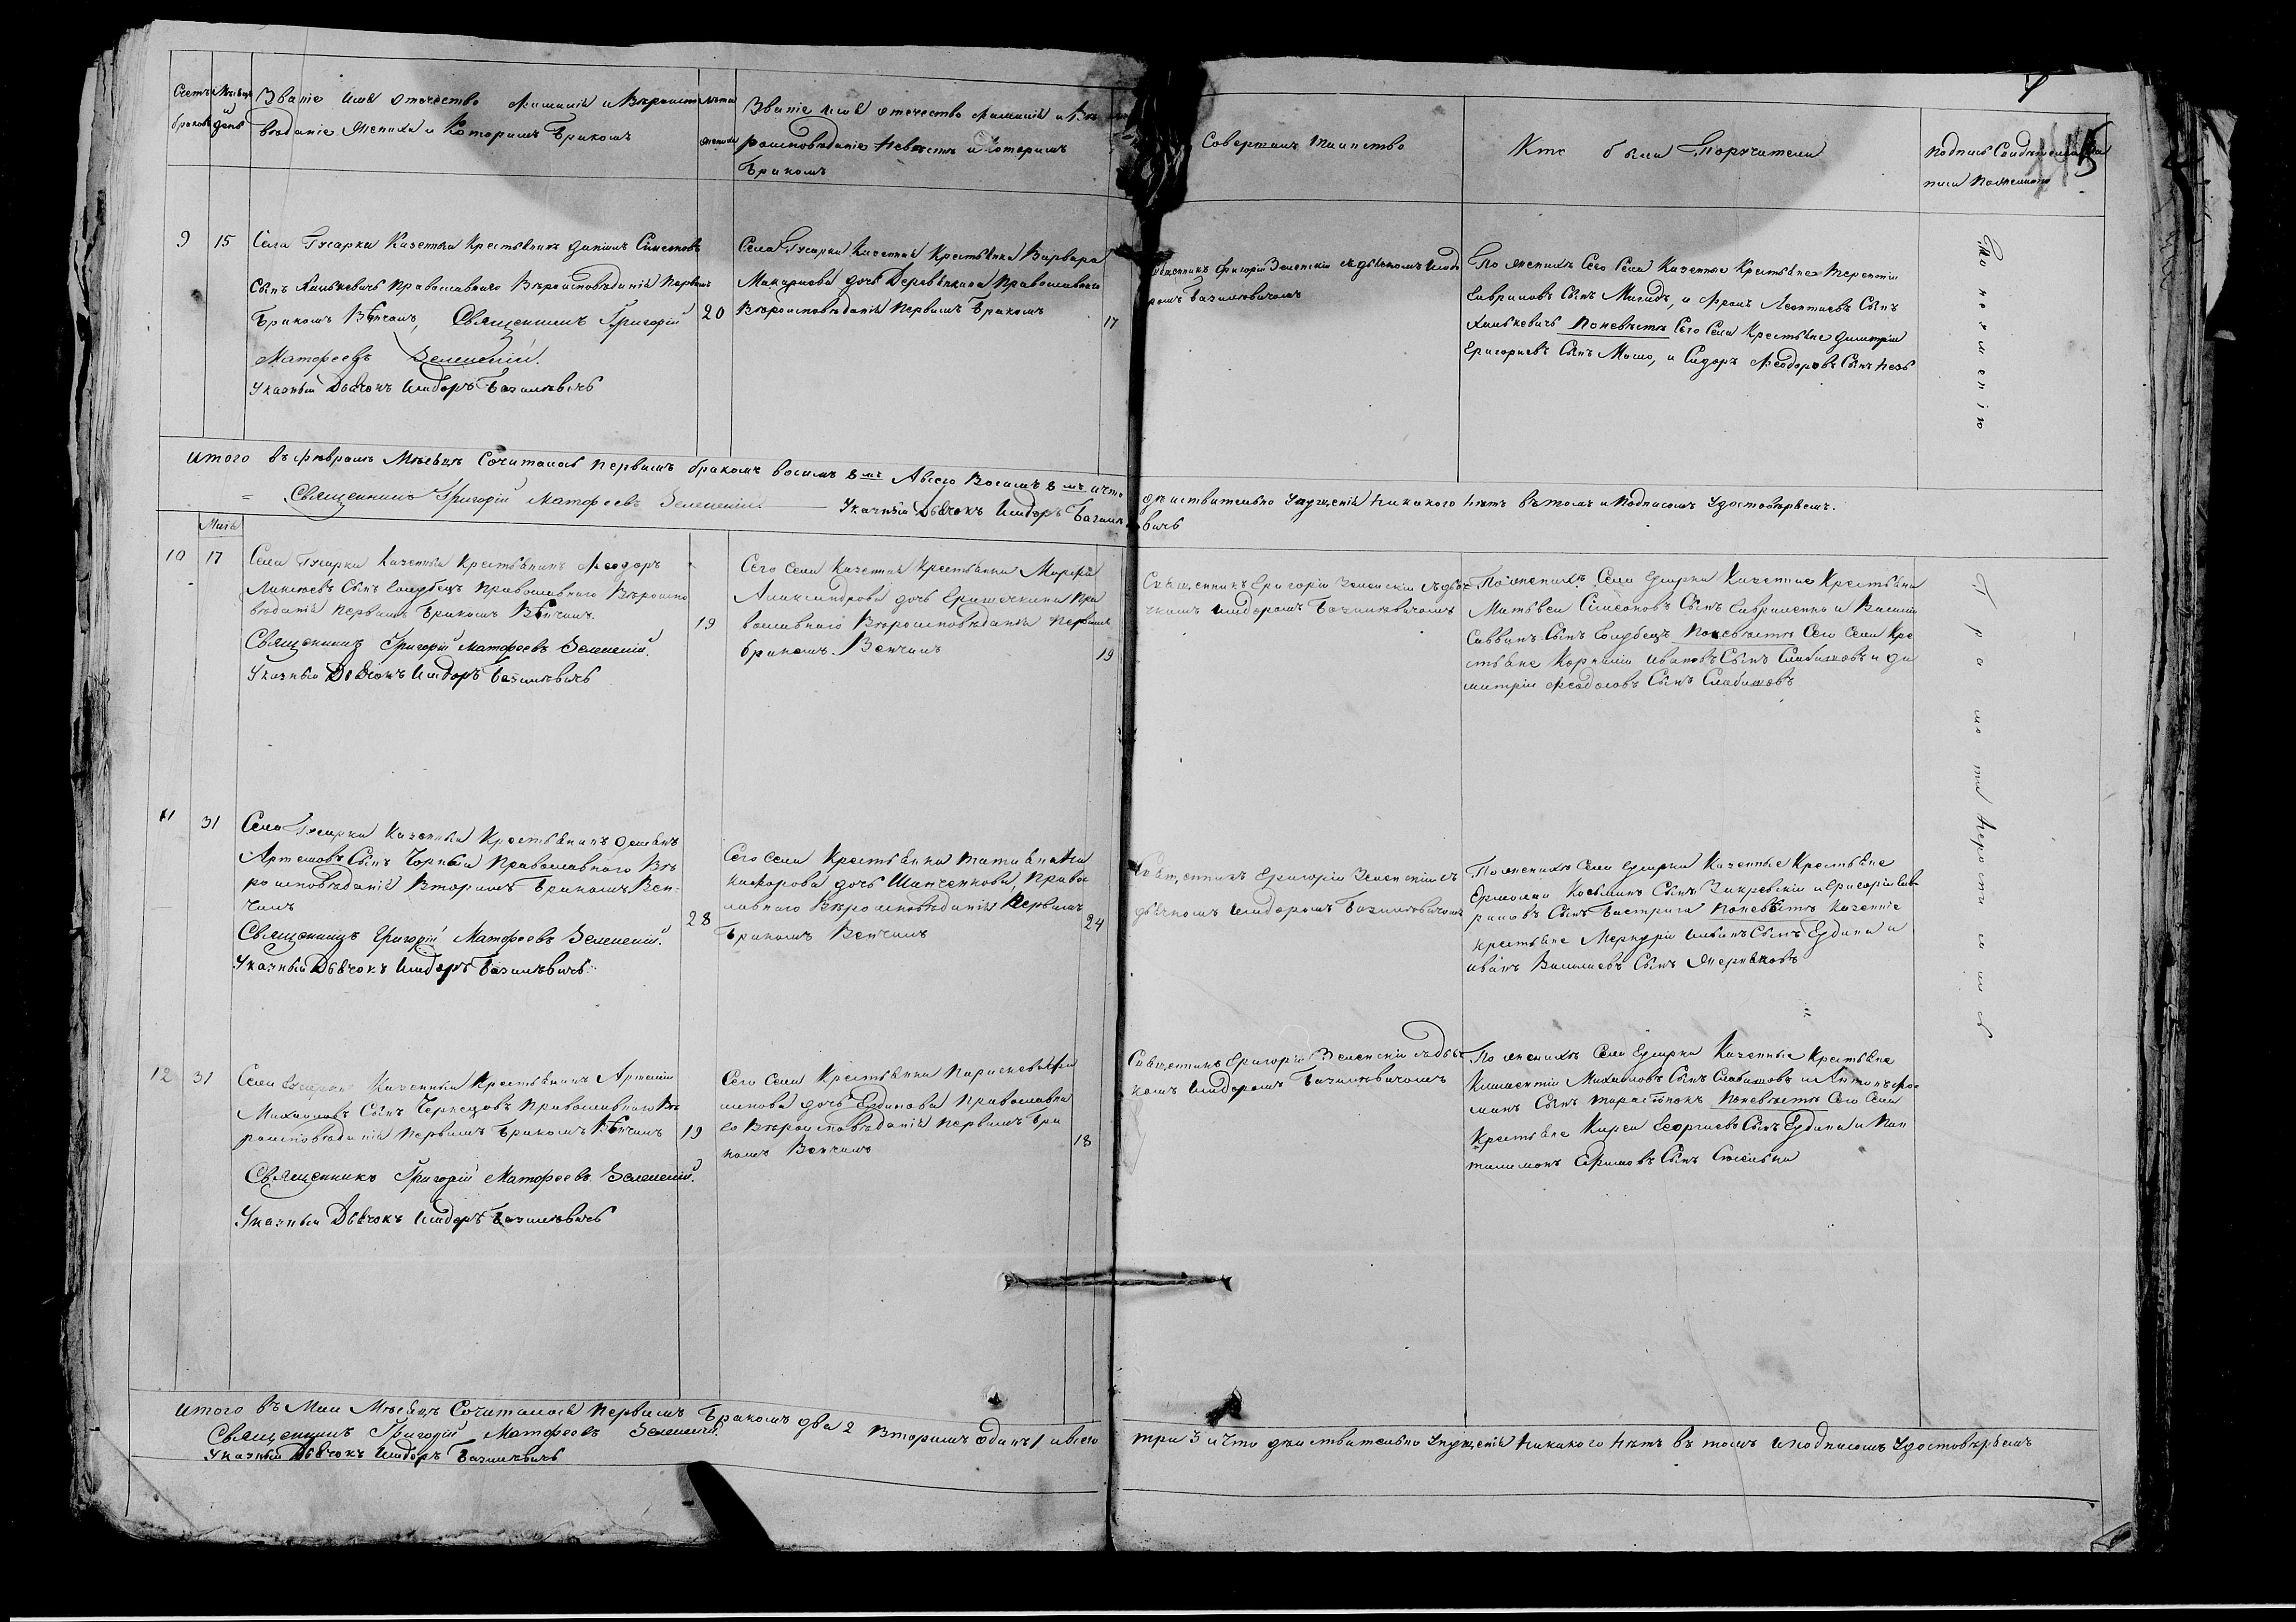 Счетъ браковъ
Месяцъ и день
Званіе имя отечество фамилія и Вероиспо
веданіе жениха и Которымъ Бракомъ
лета жениха
Званіе имя отечество фамилія и Ве
роисповеданіе Невесты и которымъ
Бракомъ
Совершалъ таинство
Кто были Поручители
подпись Свидетелей
9 15
Села Гусарки Казенный Крестьянинъ
Сынъ Хилькевичъ православного Вероисповеданія Первымъ
Бракомъ Венчанъ, Священникъ Григорій
Матфеевъ Зеленскій.
Указный Дьячокъ Исидоръ Базилевичъ
20
Села Гусарки Казенная Крестьянка Варвара
Макариева дочь Деревянкина Православного
Вероисповеданія Первымъ Бракомъ
17
Священникъ Григорій Зеленскій съ дьячкомъ Исидо
ромъ Базилевичомъ
По женихе Сего Села Казенные Крестьяне Терентій
Гавриловъ Сынъ и Леонтиевъ Сынъ
Хилькевичъ По невесте Сего Села Крестьяне Димитрій
Григориевъ Сынъ и Сидоръ Феодоровъ Сынъ
По неуменію
Итого въ Феврале Месяце Сочиталось первымъ бракомъ восимъ 8мъ А всего Восимъ 8мъ и что
действительно упущенія никакого нетъ в томъ и подписомъ удостоверяемъ.
Священникъ Григорій Матфеевъ Зеленскій. Указный Дьячокъ Исидоръ Базиле
вичъ
Май
10 17
Села Гусарки Казенный Крестьянинъ Феодоръ
Сынъ Голубецъ Православного Вероиспо
веданія первымъ Бракомъ Венчанъ
Священникъ Григорій Матфеевъ Зеленскій.
Указный Дьячокъ Исидоръ Базилевичъ
19
Сего села Казенная Крестьянка Марфа
Александрова дочь Гришечкина Пра
вославного Вероисповеданія Первымъ
бракомъ Венчанъ
19
Священникъ Григорій Зеленскій съ дья
чкомъ Исидоромъ Базилевичомъ
По женихе Села Гусарки Казенные Крестьяне
Матвей Симеоновъ Сынъ Гавриленко и Василій
Саввинъ Сынъ Голубецъ По невесте Сего Села Кре
стьяне Корнилій Ивановъ Сынъ Слабишовъ и Ди
митрій Феодосовъ Сынъ Слабишовъ
Грамоти Неросписались
11 31
Села Гусарки Казенный Крестьянинъ Демьянъ
Артемовъ Сынъ Чорный Православного Ве
роисповеданія Вторымъ Бракомъ Вен-
чанъ
Священникъ Григорій Матфеевъ Зеленскій.
Указный Дьячокъ Исидоръ Базилевичъ.
28
Сего села Крестьянка Татиана Ни
кифорова дочь Шапченкова, Право
славного Вероисповеданія Первымъ
Бракомъ Венчанъ
24
Священникъ Григорій Зеленскій съ
дьячкомъ Исидоромъ Базилевичомъ
По женихе Села Гусарки Казенные Крестьяне
Ермолай Косьминъ Сынъ Закревскій и Григорій Гав
риловъ Сынъ Бистрига По невесте Казенніе
крестьяне Меркурій Ильинъ Сынъ Едина и
Иванъ Василиевъ Сынъ
12 31
Села Гусарки Казенный Крестьянинъ Арсеній
Михаиловъ Сынъ Чернецовъ Православного Ве
роисповеданія Первымъ Бракомъ Венчанъ
Священникъ Григорій Матфеевъ Зеленскій.
Указный Дьячокъ Исидоръ Базилевичъ
19
Сего Села Крестьянка Параскева
дочь Единова Православна
го Вероисповеданія Первымъ Бра
комъ Венчанъ
18
Священникъ Григорій Зеленскій съ дьяч
комъ Исидоромъ Базилевичомъ
По женихе Села Гусарки Казенные Крестьяне
Климентій Михаиловъ Сынъ Слабишовъ и Антонъ Фо
минъ Сынъ По невесте Сего Села
Крестьяне Карпъ Георгиевъ Сынъ Едина и Пан
телимонъ Ефимовъ Сынъ
Итого въ Маи Месяце Сочиталось первымъ Бракомъ два 2 Вторымъ одинъ 1 а всего
три 3 и что действительно упущенія никакого нетъ в томъ и подписомъ удостоверяемъ
Священникъ Григорій Матфеевъ Зеленскій.
Указный Дьячокъ Исидоръ Базилевичъ